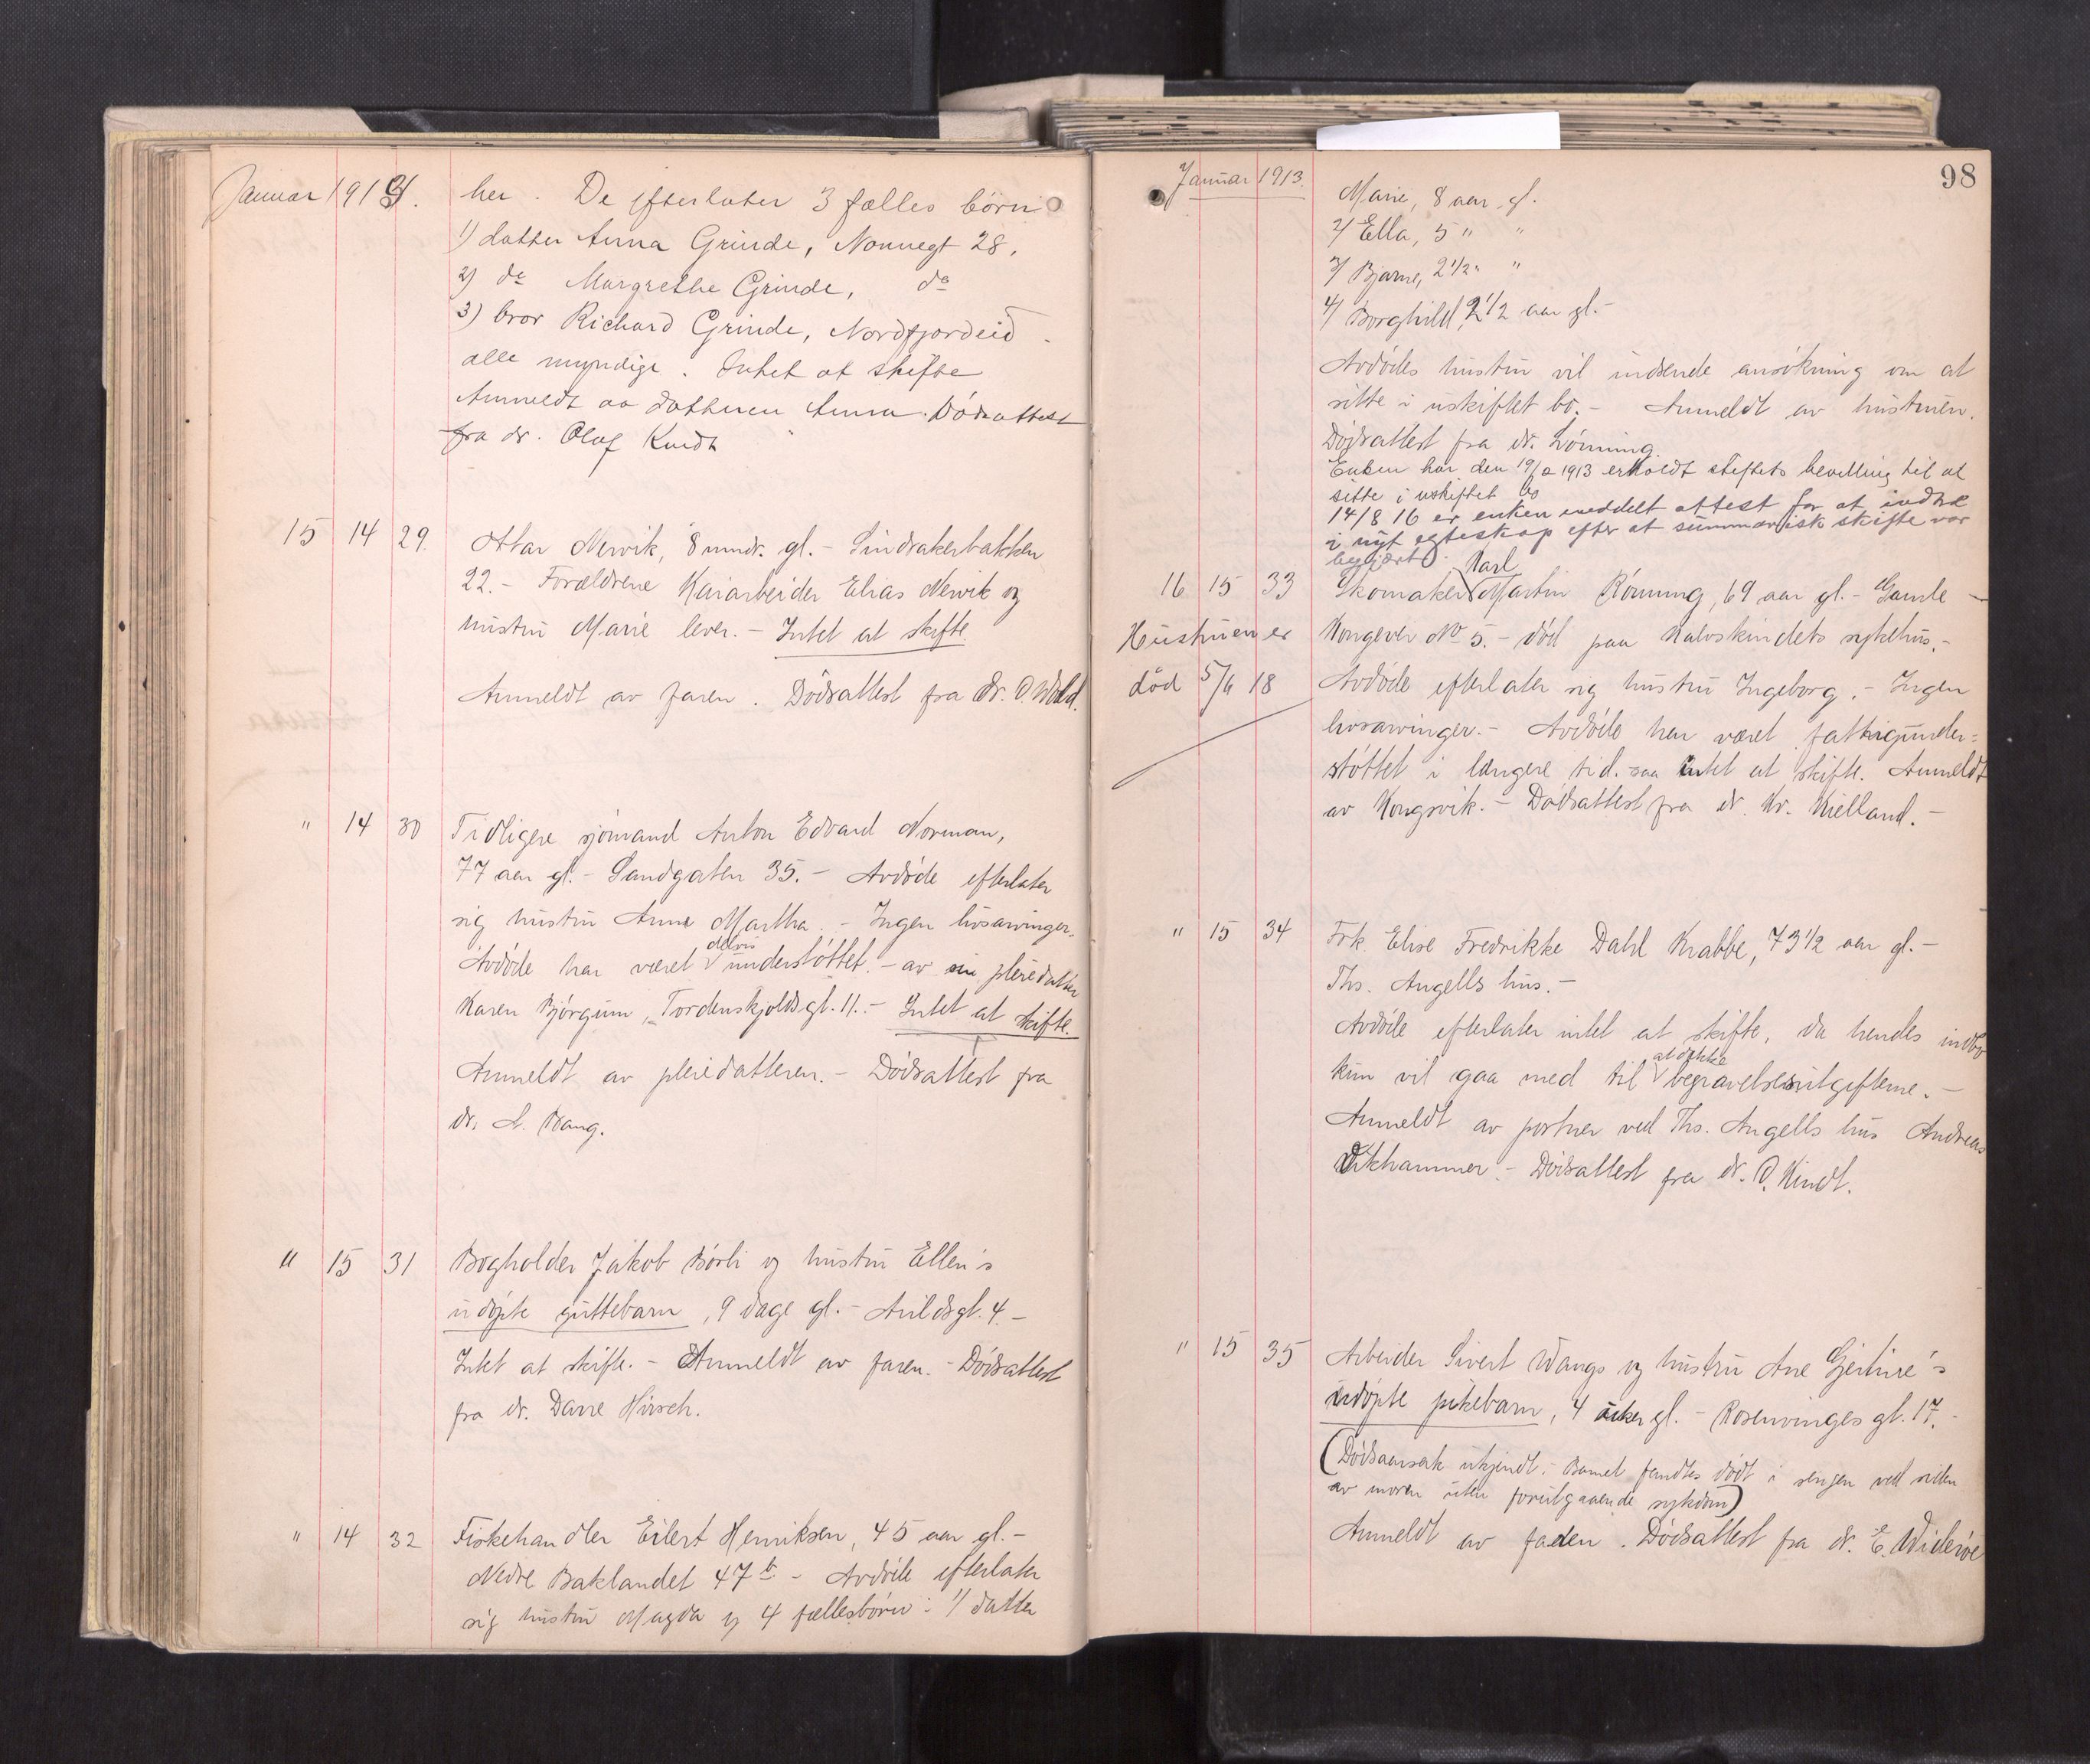 Januar 1913.
her. De efterlater 3 fælles börn
1) datter Anna Grinde, Nonnegt 28.
2) do Margrethe Grinde, do
3) bror Richard Grinde, Nordfjordeid.
alle myndige. Intet at skifte
Anmeldt av datteren Anna. Dödsattest
fra dr. Olaf Kindt
15 14 29. Ottar Nervik, 8 mndr. gl. - Sindsakerbakken
22. - Forældrene Kaiarbeider Elias Nervik og
hustru Marie lever. - Intet at skifte.
Anmeldt av faren. Dödsattest fra dr. O. Wold.
" 14 30 Tidligere sjömand Anton Edvard Norman,
77 aar gl. - Sandgaten 35. - Avdöde efterlater
sig hustru Anne Martha. - Ingen livsarvinger.
delvis
Avdöde har været understöttet. - av sin pleiedatter
Karen Björgum, Tordenskjoldsgt. 11. - Intet at skifte.
Anmeldt av pleiedatteren. - Dödsattest fra
dr. A. Bang.
" 15 31 Bogholder Jakob Börli og hustru Ellen's
udöpte guttebarn, 9 dage gl. - Arildsgt. 4. -
Intet at skifte. - Anmeldt av faren. - Dödsattest
fra dr. Darre Hirsch.
" 14 32 Fiskehandler Eilert Henriksen, 45 aar gl. -
Nedre Baklandet 47 b - Avdöde efterlater
sig hustru Magda og 4 fællesbörn: 1/ datter
98
Januar 1913.
Marie, 8 aar gl.
2/ Ella, 5 " "
3/ Bjarne, 2 1/2 " "
4/ Borghild, 2 1/2 aar gl. -
Avdödes hustru vil indsende ansökning om at
sitte i uskiftet bo. - Anmeldt av hustruen.
Dödsattest fra dr. Lönning.
Enken har den 19/2 1913 erholdt skiftets bevilling til at
sitte i uskiftet bo
14/8 16 er enken meddelt attest for at indtræ
i nyt egteskap efter at summarisk skifte var
begjært.
Karl
16 15 33 Skomaker Martin Rönning, 69 aar gl. - Gamle
Hustruen er
Kongevei No 5. - död paa Kalvskindets sykehus. -
död 5/6 18
Avdöde efterlater sig hustru Ingeborg. - Ingen
livsarvinger. - Avdöde har været fattigunder=
stöttet i længere tid. saa intet at skifte. Anmeldt
av Kongsvik. - Dödsattest fra dr. Kr. Kielland. -
" 15 34 Frk. Elise Fredrikke Dahl Krabbe, 73 1/2 aar gl. -
Ths. Angells hus. -
Avdöde efterlater intet at skifte, da hendes indbo
at dekke
kun vil gaa med til begravelsesutgifterne. -
Anmeldt av portner ved Ths. Angells hus Andreas
Vikhammer. - Dödsattest fra dr. O. Kindt.
" 15 35 Arbeider Sivert Wangs og hustru Ane Gjertine's
udöpte pikebarn, 4 uker gl. - Rosenvinges gt. 17. -
(Dödsaarsak ukjendt. - Barnet fandtes dødt i sengen ved siden
av moren uten forutgaaende sykdom)
Anmeldt av faden. Dödsattest fra dr. E. Wideröe